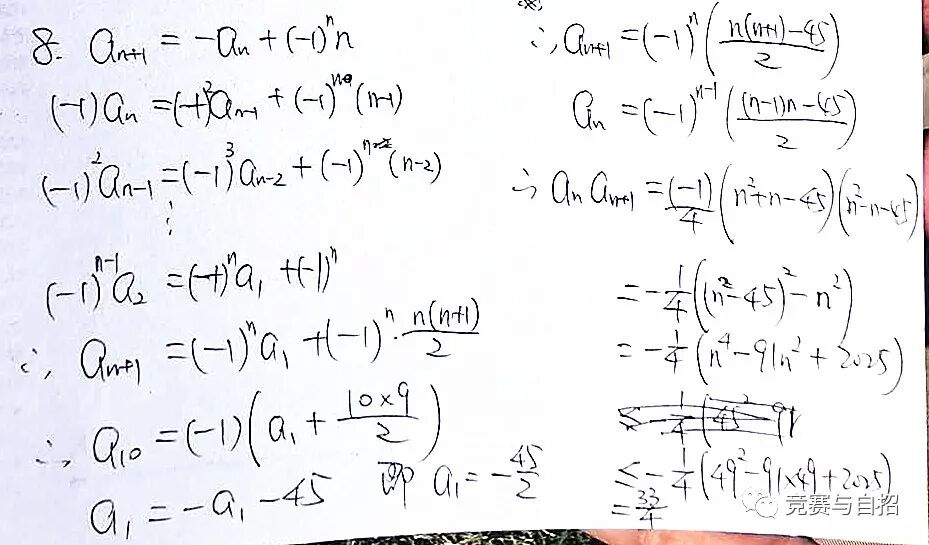 8. aₙ₊₁ = -aₙ + (-1)ⁿn
(-1)aₙ = (-1)²aₙ₋₁ + (-1)ⁿ(n-1)
(-1)²aₙ₋₁ = (-1)³aₙ₋₂ + (-1)ⁿ(n-2)
⋮
(-1)ⁿ⁻¹a₂ = (-1)ⁿa₁ + (-1)ⁿ
∴ aₙ₊₁ = (-1)ⁿa₁ + (-1)ⁿ · n(n+1)/2
∴ a₁₀ = (-1)(a₁ + 10×9/2)
a₁ = -a₁ - 45 即 a₁ = -45/2
∴ aₙ₊₁ = (-1)ⁿ((n(n+1)-45)/2)
aₙ = (-1)ⁿ⁻¹(((n-1)n-45)/2)
∴ aₙaₙ₊₁ = (-1)/4 (n²+n-45)(n²-n-45)
= -1/4((n²-45)²-n²)
= -1/4(n⁴-91n²+2025)
≤ -1/4(49²-91×49+2025)
= 33/4
竞赛与自招